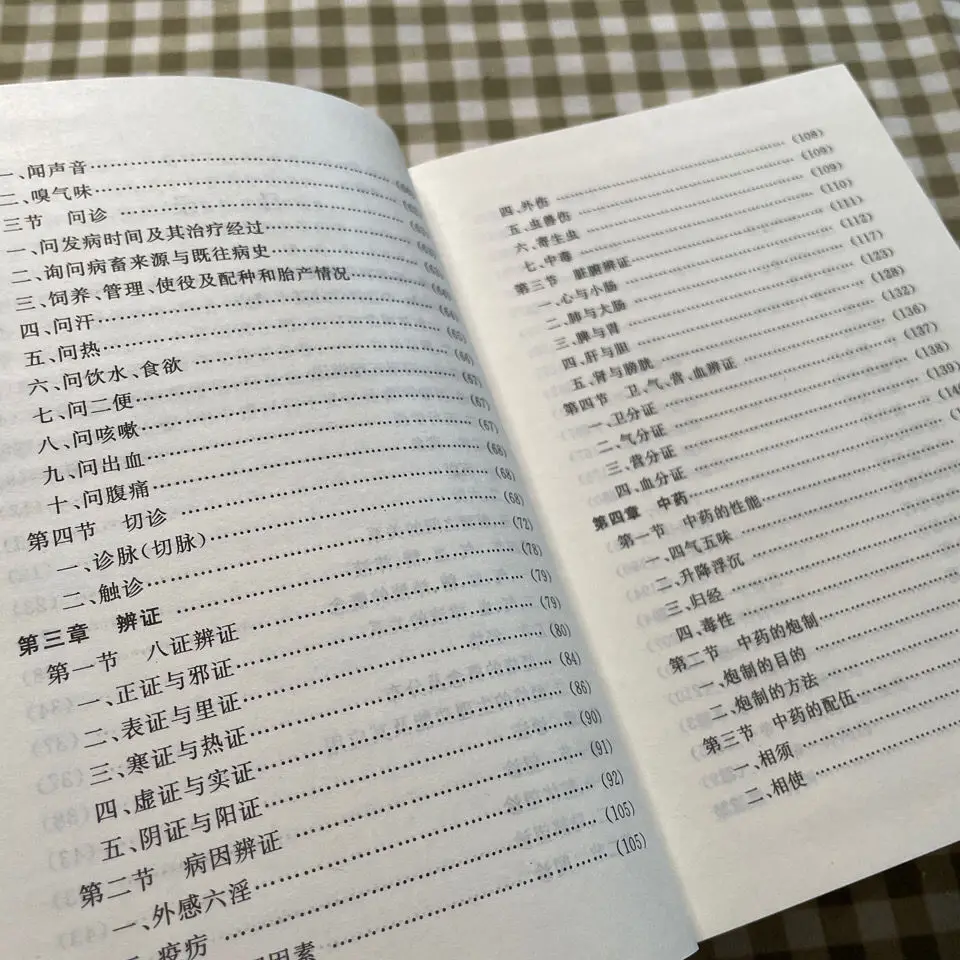 一、闻声音
二、嗅气味
三节 问诊
一、问发病时间及其治疗经过
二、询问病畜来源与既往病史
三、饲养、管理、使役及配种和胎产情况
四、问汗
五、问热 (65)
六、问饮水、食欲 (66)
七、问二便 (67)
八、问咳嗽 (67)
九、问出血 (67)
十、问腹痛 (68)
第四节 切诊 (68)
一、诊脉(切脉) (68)
二、触诊 (72)
第三章 辨证 (78)
第一节 八证辨证 (79)
一、正证与邪证 (79)
二、表证与里证 (80)
三、寒证与热证 (84)
四、虚证与实证 (86)
五、阴证与阳证 (90)
第二节 病因辨证 (91)
一、外感六淫 (92)
疫疠 (105)
因素 (105)
四、外伤 (108)
五、虫兽伤 (109)
六、寄生虫 (109)
七、中毒 (110)
第三节 脏腑辨证 (111)
一、心与小肠 (112)
二、肺与大肠 (117)
三、脾与胃 (123)
四、肝与胆 (128)
五、肾与膀胱 (132)
第四节 卫、气、营、血辨证 (136)
一、卫分证 (137)
二、气分证 (138)
三、营分证 (139)
四、血分证
第四章 中药
第一节 中药的性能
一、四气五味
二、升降浮沉
三、归经
四、毒性
第二节 中药的炮制
一、炮制的目的
二、炮制的方法
第三节 中药的配伍
一、相须
二、相使